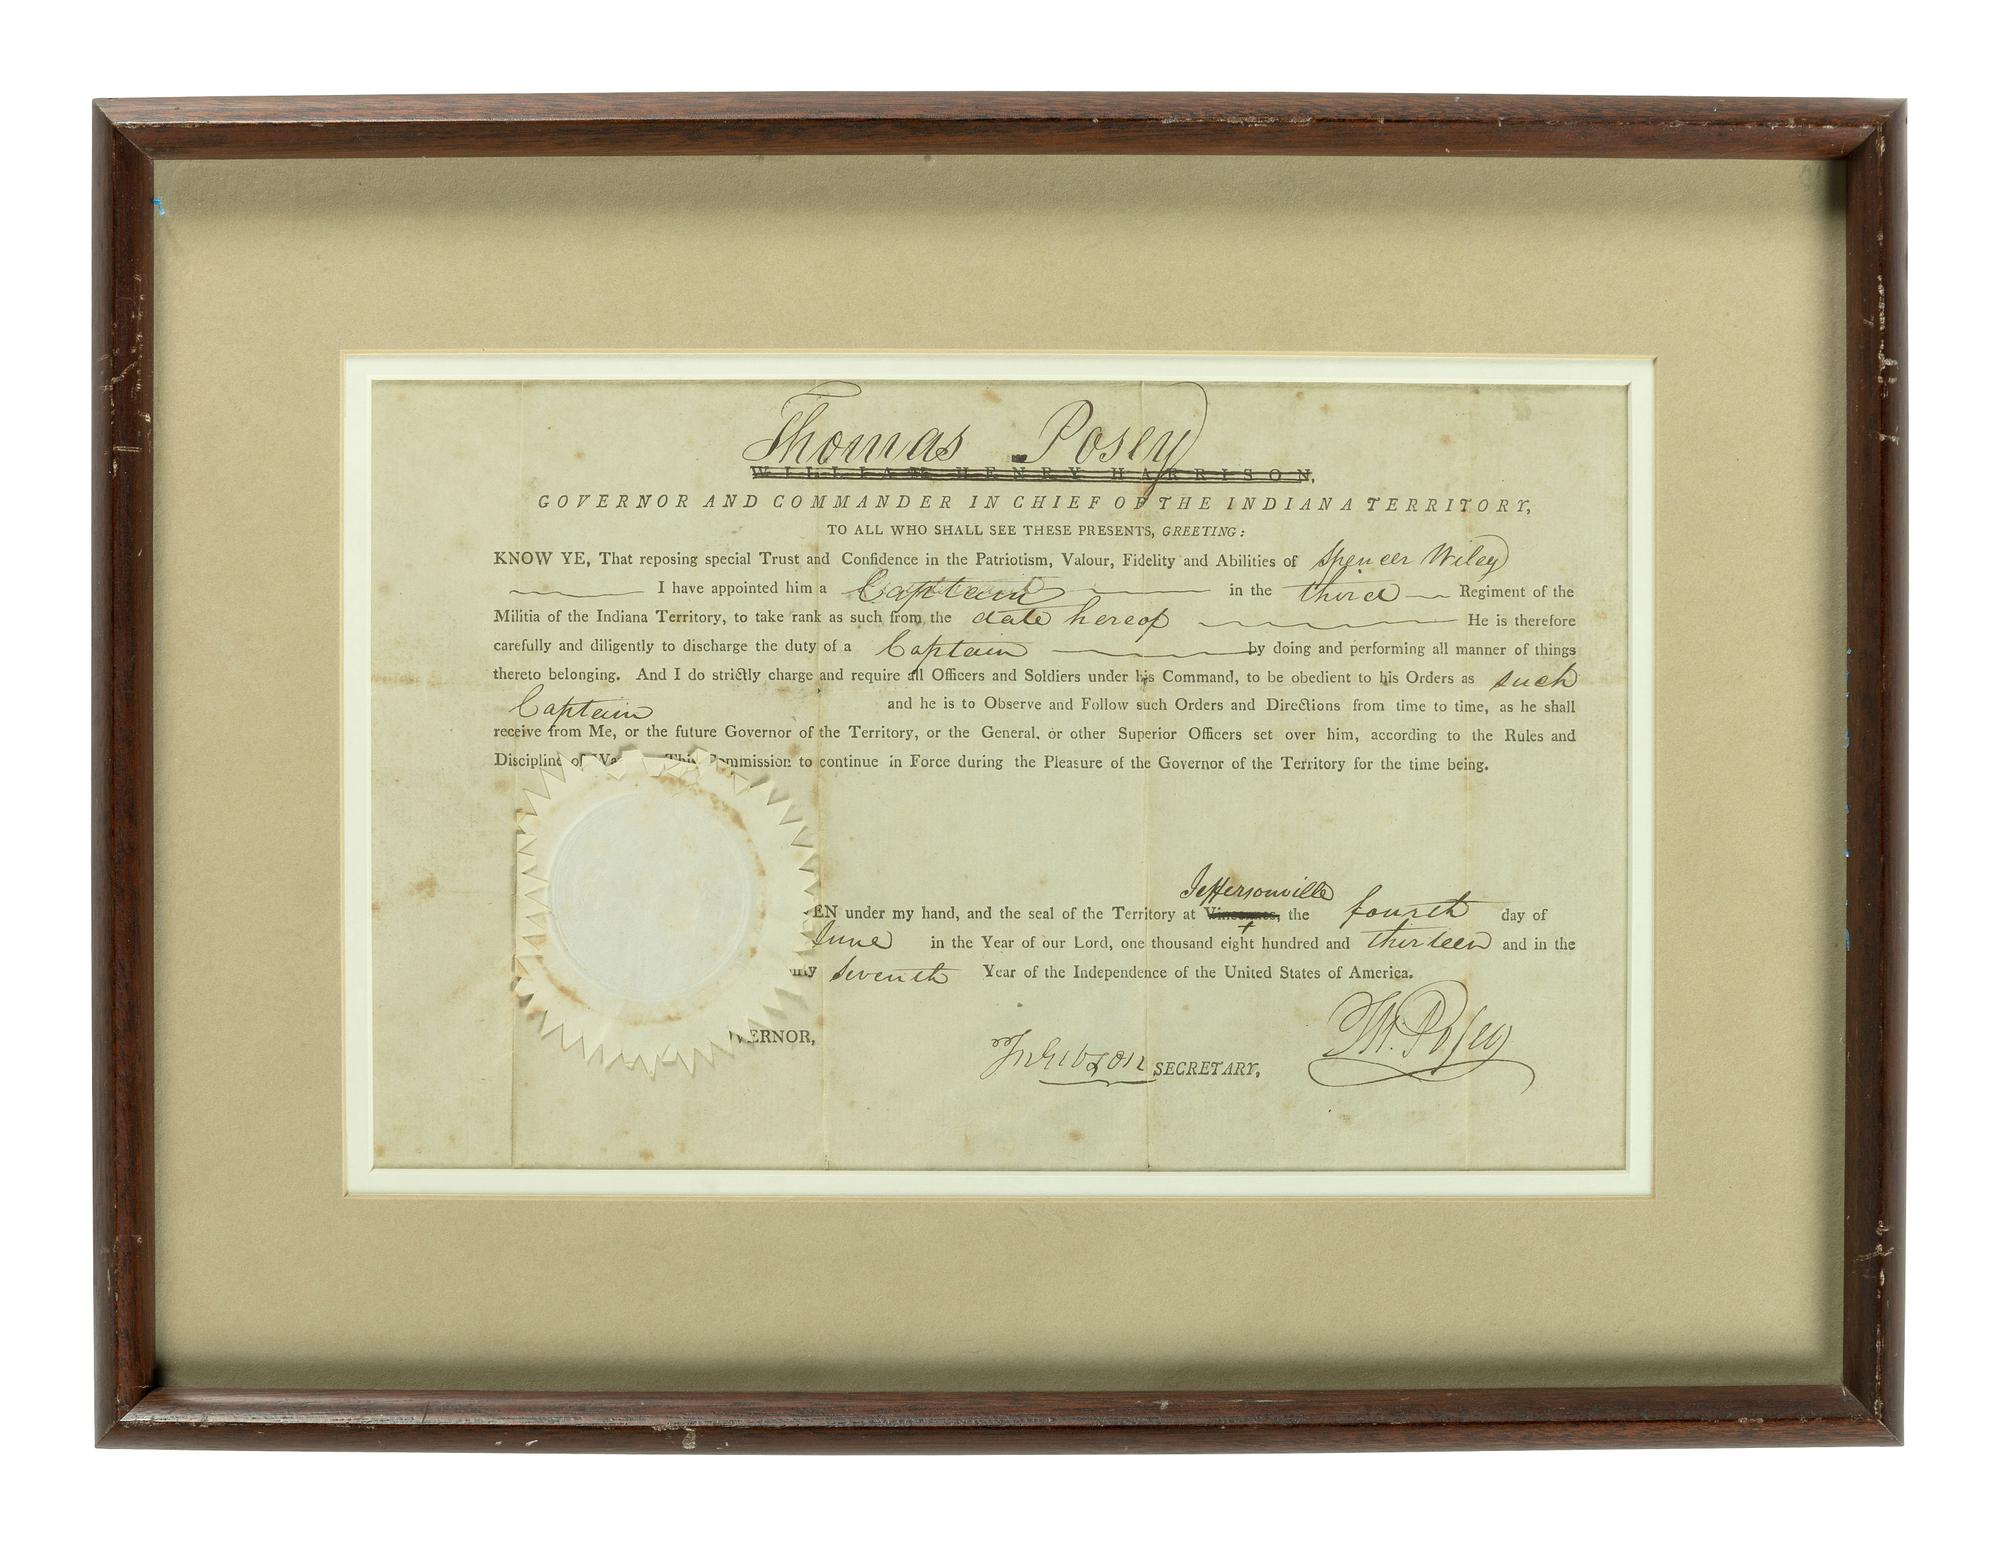 Thomas Posey
WILLIAM HENRY HARRISON,
GOVERNOR AND COMMANDER IN CHIEF OF THE INDIANA TERRITORY,
TO ALL WHO SHALL SEE THESE PRESENTS, GREETING:
KNOW YE, That reposing special Trust and Confidence in the Patriotism, Valour, Fidelity and Abilities of Spencer Wiley
I have appointed him a Captain in the third Regiment of the
Militia of the Indiana Territory, to take rank as such from the date hereof He is therefore
carefully and diligently to discharge the duty of a Captain by doing and performing all manner of things
thereto belonging. And I do strictly charge and require all Officers and Soldiers under his Command, to be obedient to his Orders as such
Captain and he is to Observe and Follow such Orders and Directions from time to time, as he shall
receive from Me, or the future Governor of the Territory, or the General, or other Superior Officers set over him, according to the Rules and
Discipline of This Commission to continue in Force during the Pleasure of the Governor of the Territory for the time being.
Jeffersonville
EN under my hand, and the seal of the Territory at Vincennes, the fourth day of
June in the Year of our Lord, one thousand eight hundred and thirteen and in the
seventh Year of the Independence of the United States of America.
VERNOR,
Jno Gibson SECRETARY,
Th. Posey